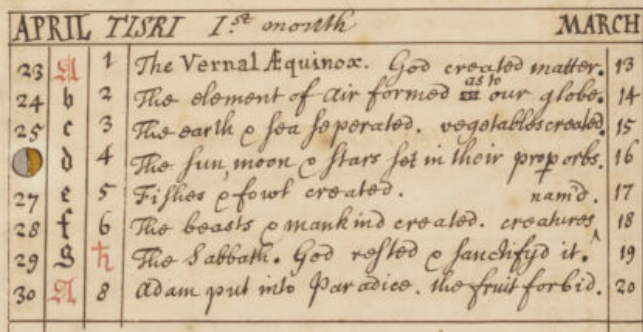 APRIL TISRI I.st month MARCH
23 A 1 The Vernal Æquinox. God created matter. 13
as to
24 b 2 The element of air formed our globe. 14
25 c 3 The earth & sea seperated. vegetables created. 15
d 4 The sun, moon & stars set in their prop orbs. 16
27 e 5 Fishes & fowl created. nam'd. 17
28 f 6 The beasts & mankind created. creatures ^ 18
29 g ♄ The Sabbath. God rested & sanctifyd it. 19
30 A 8 Adam put into Paradice. the fruit forbid. 20